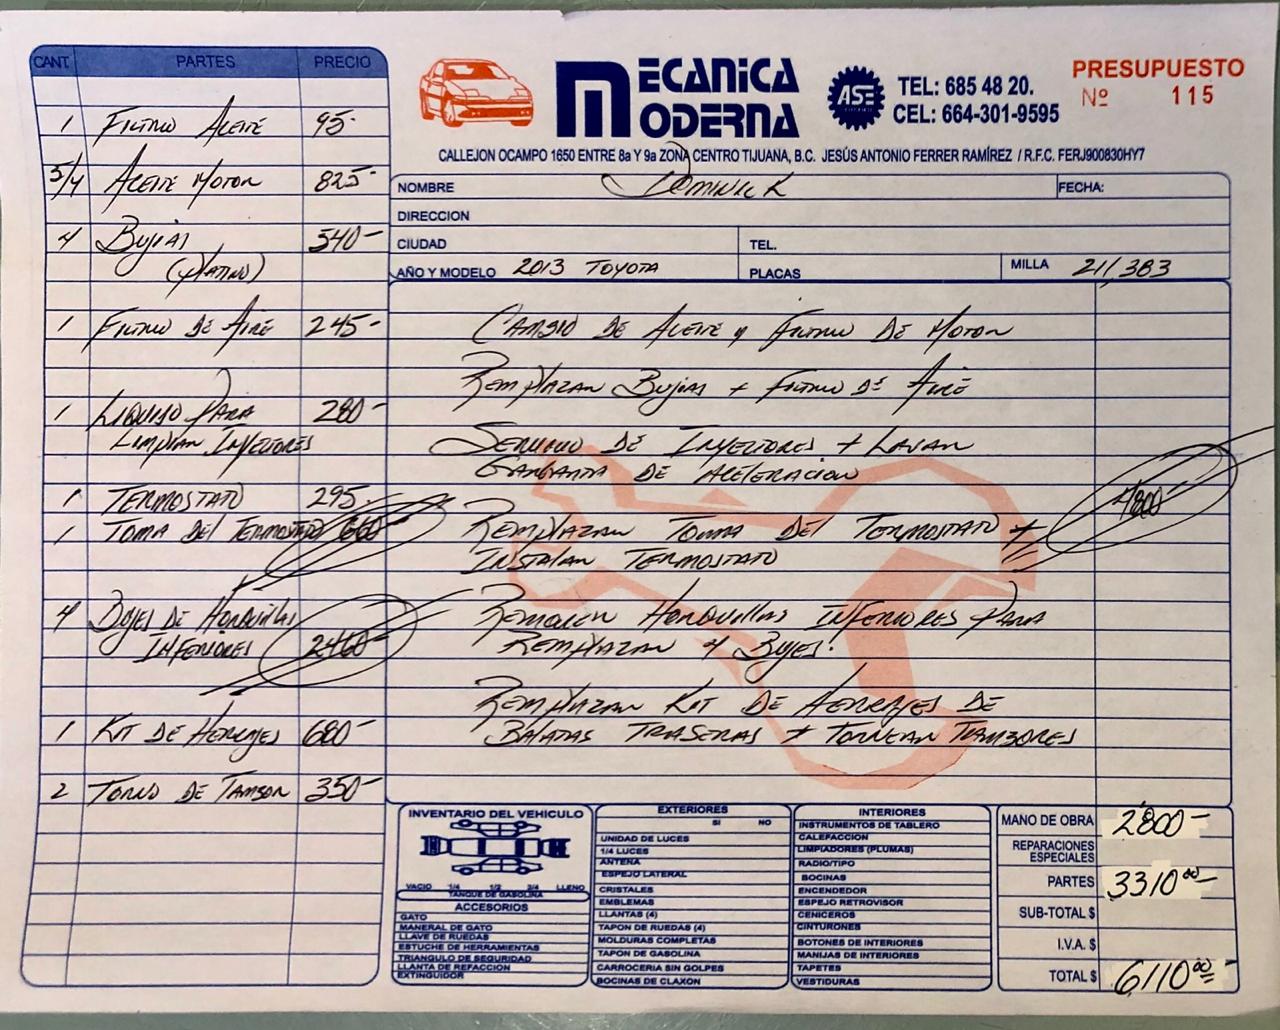 CANT. PARTES PRECIO
1 Filtro Aceite 95-
5/4 Aceite Motor 825-
4 Bujias 540-
(platino)
1 Filtro de Aire 245-
1 Liquido para 280-
Limpiar Inyectores
1 Termostato 295-
1 Toma del Termostato 660-
4 Bujes de Horquillas
Inferiores 2460-
1 Kit de Herrajes 680-
2 Torno de Tambor 350-
MECANICA
MODERNA
ASE
TEL: 685 48 20.
CEL: 664-301-9595
PRESUPUESTO
Nº 115
CALLEJON OCAMPO 1650 ENTRE 8a Y 9a ZONA CENTRO TIJUANA, B.C. JESÚS ANTONIO FERRER RAMÍREZ / R.F.C. FERJ900830HY7
NOMBRE Dominick FECHA:
DIRECCION
CIUDAD TEL.
AÑO Y MODELO 2013 Toyota PLACAS MILLA 21/383
Cambio de Aceite y Filtro de Motor
Remplazar Bujias + Filtro de Aire
Servicio de Inyectores + Lavar
Garganta de Aceleracion
4800-
Remplazar Toma del Termostato +
Instalar Termostato
Remover Horquillas Inferiores para
Remplazar 4 Bujes.
Remplazar Kit de Herrajes de
Balatas Traseras + Tornear Tambores
INVENTARIO DEL VEHICULO
VACIO 1/4 1/2 3/4 LLENO
TANQUE DE GASOLINA
ACCESORIOS
GATO
MANERAL DE GATO
LLAVE DE RUEDAS
ESTUCHE DE HERRAMIENTAS
TRIANGULO DE SEGURIDAD
LLANTA DE REFACCION
EXTINGUIDOR
EXTERIORES
SI NO
UNIDAD DE LUCES
1/4 LUCES
ANTENA
ESPEJO LATERAL
CRISTALES
EMBLEMAS
LLANTAS (4)
TAPON DE RUEDAS (4)
MOLDURAS COMPLETAS
TAPON DE GASOLINA
CARROCERIA SIN GOLPES
BOCINAS DE CLAXON
INTERIORES
INSTRUMENTOS DE TABLERO
CALEFACCION
LIMPIADORES (PLUMAS)
RADIO/TIPO
BOCINAS
ENCENDEDOR
ESPEJO RETROVISOR
CENICEROS
CINTURONES
BOTONES DE INTERIORES
MANIJAS DE INTERIORES
TAPETES
VESTIDURAS
MANO DE OBRA 2800-
REPARACIONES
ESPECIALES
PARTES 3310.00-
SUB-TOTAL $
I.V.A. $
TOTAL $ 6110.00-